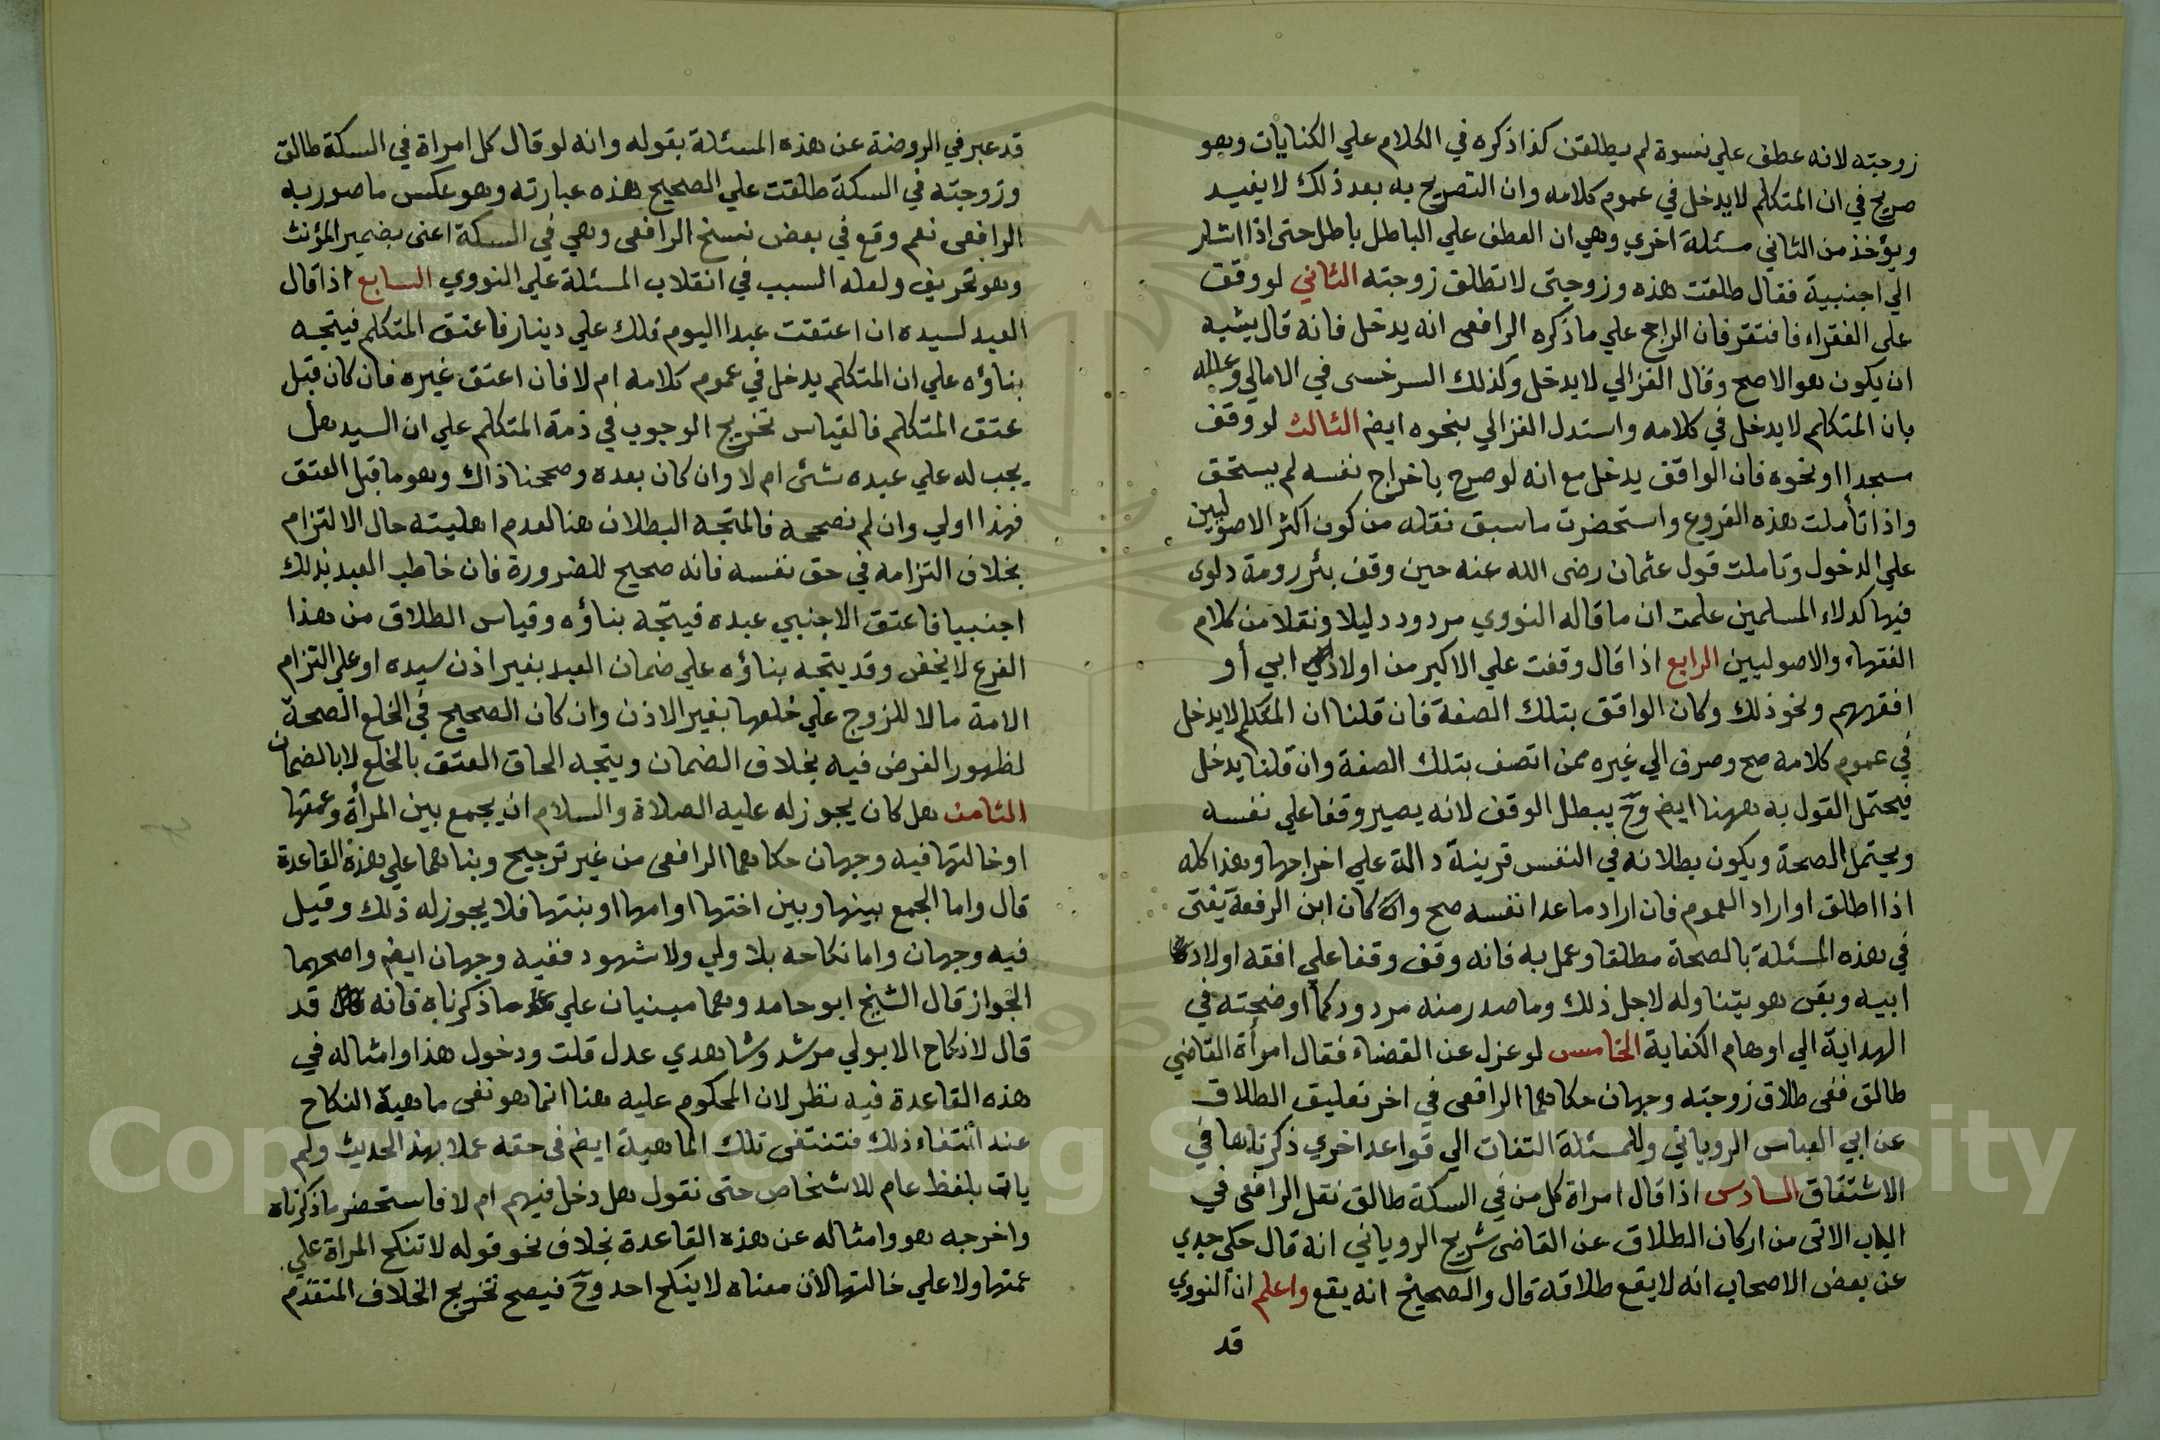 زوجته لانه عطف علي نسوة لم يطلقن كذا ذكره في الكلام علي الكنايات وهو
صريح في ان المتكلم لا يدخل في عموم كلامه وان التصريح به بعد ذلك لا يفيد
ويؤخذ من الثاني مسئلة اخري وهي ان العطف علي الباطل باطل حتى اذا اشار
الي اجنبية فقال طلقت هذه وزوجتى لا تطلق زوجته الثاني لو وقف
على الفقراء فافتقر فان الراجح علي ما ذكره الرافعى انه يدخل فانه قال يشبه
ان يكون هو الاصح وقال الغزالي لا يدخل وكذلك السرخسى في الامالي وعلله
بان المتكلم لا يدخل في كلامه واستدل الغزالي بنحوه ايض الثالث لو وقف
مسجدا او نحوه فان الواقف يدخل مع انه لو صرح باخراج نفسه لم يستحق
واذا تأملت هذه الفروع واستحضرت ما سبق نقله من كون اكثر الاصوليين
علي الدخول وتاملت قول عثمان رضى الله عنه حين وقف بئر رومة دلوى
فيها كدلاء المسلمين علمت ان ما قاله النووي مردود دليلا ونقلا من كلام
الفقهاء والاصوليين الرابع اذا قال وقفت علي الاكبر من اولاد ابي أو
افقههم ونحو ذلك وكان الواقف بتلك الصفة فان قلنا ان المتكلم لا يدخل
في عموم كلامه صح وصرف الي غيره ممن اتصف بتلك الصفة وان قلنا يدخل
فيحتمل القول به ههنا ايض وح يبطل الوقف لانه يصير وقفا علي نفسه
ويحتمل الصحة ويكون بطلانه في النفس قرينة دالة علي اخراجها وهذا كله
اذا اطلق او اراد العموم فان اراد ما عدا نفسه صح وان كان ابن الرفعة يفتى
في هذه المسئلة بالصحة مطلقا وعمل به فانه وقف وقفا علي افقه اولاد
ابيه وبقى هو يتناوله لاجل ذلك وما صدر منه مردود كما اوضحته في
الهداية الي اوهام الكفاية الخامس لو عزل عن القضاء فقال امرأة القاضي
طالق ففى طلاق زوجته وجهان حكاهما الرافعى في اخر تعليق الطلاق
عن ابي العباس الروياني وللمسئلة التفات الي قواعد اخري ذكرناها في
الاشتقاق السادس اذا قال امراة كل من في السكة طالق نقل الرافعى في
الباب الاتى من اركان الطلاق عن القاضى شريح الروياني انه قال حكى جدي
عن بعض الاصحاب انه لا يقع طلاقه قال والصحيح انه يقع واعلم ان النووي
قد
قد عبر في الروضة عن هذه المسئلة بقوله وانه لو قال كل امراة في السكة طالق
وزوجته في السكة طلقت علي الصحيح هذه عبارته وهو عكس ما صور به
الرافعى نعم وقع في بعض نسخ الرافعى وهي في السكة اعنى بضمير المؤنث
وهو تحريف ولعله السبب في انقلاب المسئلة علي النووي السابع اذا قال
العبد لسيده ان اعتقت عبدا اليوم فلك علي دينار فاعتق المتكلم فيتجه
بناؤه علي ان المتكلم يدخل في عموم كلامه ام لا فان اعتق غيره فان كان قبل
عتق المتكلم فالقياس تخريج الوجوب في ذمة المتكلم علي ان السيد هل
يجب له علي عبده شئ ام لا وان كان بعده وصححنا ذاك وهو ما قبل العتق
فهذا اولي وان لم نصححه فالمتجه البطلان هنا لعدم اهليته حال الالتزام
بخلاف التزامه في حق نفسه فانه صحيح للضرورة فان خاطب العبد بذلك
اجنبيا فاعتق الاجنبي عبده فيتجه بناؤه وقياس الطلاق من هذا
الفرع لا يخفى وقد يتجه بناؤه علي ضمان العبد بغير اذن سيده او علي التزام
الامة مالا للزوج علي خلعها بغير الاذن وان كان الصحيح في الخلع الصحة
لظهور الغرض فيه بخلاف الضمان ويتجه الحاق العتق بالخلع لا بالضمان
الثامن هل كان يجوز له عليه الصلاة والسلام ان يجمع بين المرأة وعمتها
او خالتها فيه وجهان حكاهما الرافعى من غير ترجيح وبناهما علي هذه القاعدة
قال واما الجمع بينها وبين اختها او امها او بنتها فلا يجوز له ذلك وقيل
فيه وجهان واما نكاحه بلا ولي ولا شهود ففيه وجهان ايض واصحهما
الجواز قال الشيخ ابو حامد وهما مبنيان علي ما ذكرناه فانه قد
قال لا نكاح الا بولي مرشد وشاهدي عدل قلت ودخول هذا وامثاله في
هذه القاعدة فيه نظر لان المحكوم عليه هنا انما هو نفى ماهية النكاح
عند انتفاء ذلك فتنتفى تلك الماهية ايض فى حقه عملا بهذا الحديث ولم
يات بلفظ عام للاشخاص حتى نقول هل دخل فيهم ام لا فاستحضر ما ذكرناه
واخرجه هو وامثاله عن هذه القاعدة بخلاف نحو قوله لا تنكح المراة علي
عمتها ولا علي خالتها لأن معناه لا ينكح احد وح فيصح تخريج الخلاف المتقدم
Copyright © King Saud University